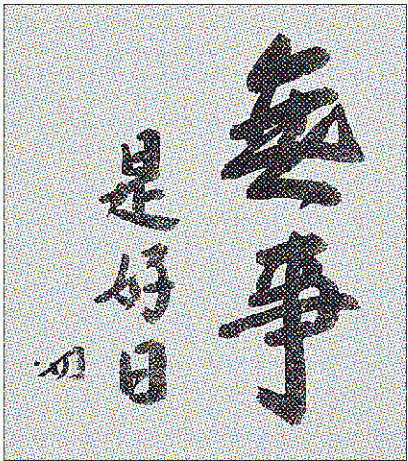 無事
是好日